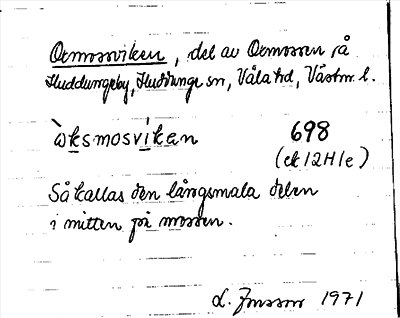 Oxmossviken, del av Oxmossen på
Huddungeby, Huddunge sn, Våla hd, Västm. l.
òksmosviken 698
(ek 12H1e)
Så kallas den långsmala delen
i mitten på mossen.
L. Jonsson 1971